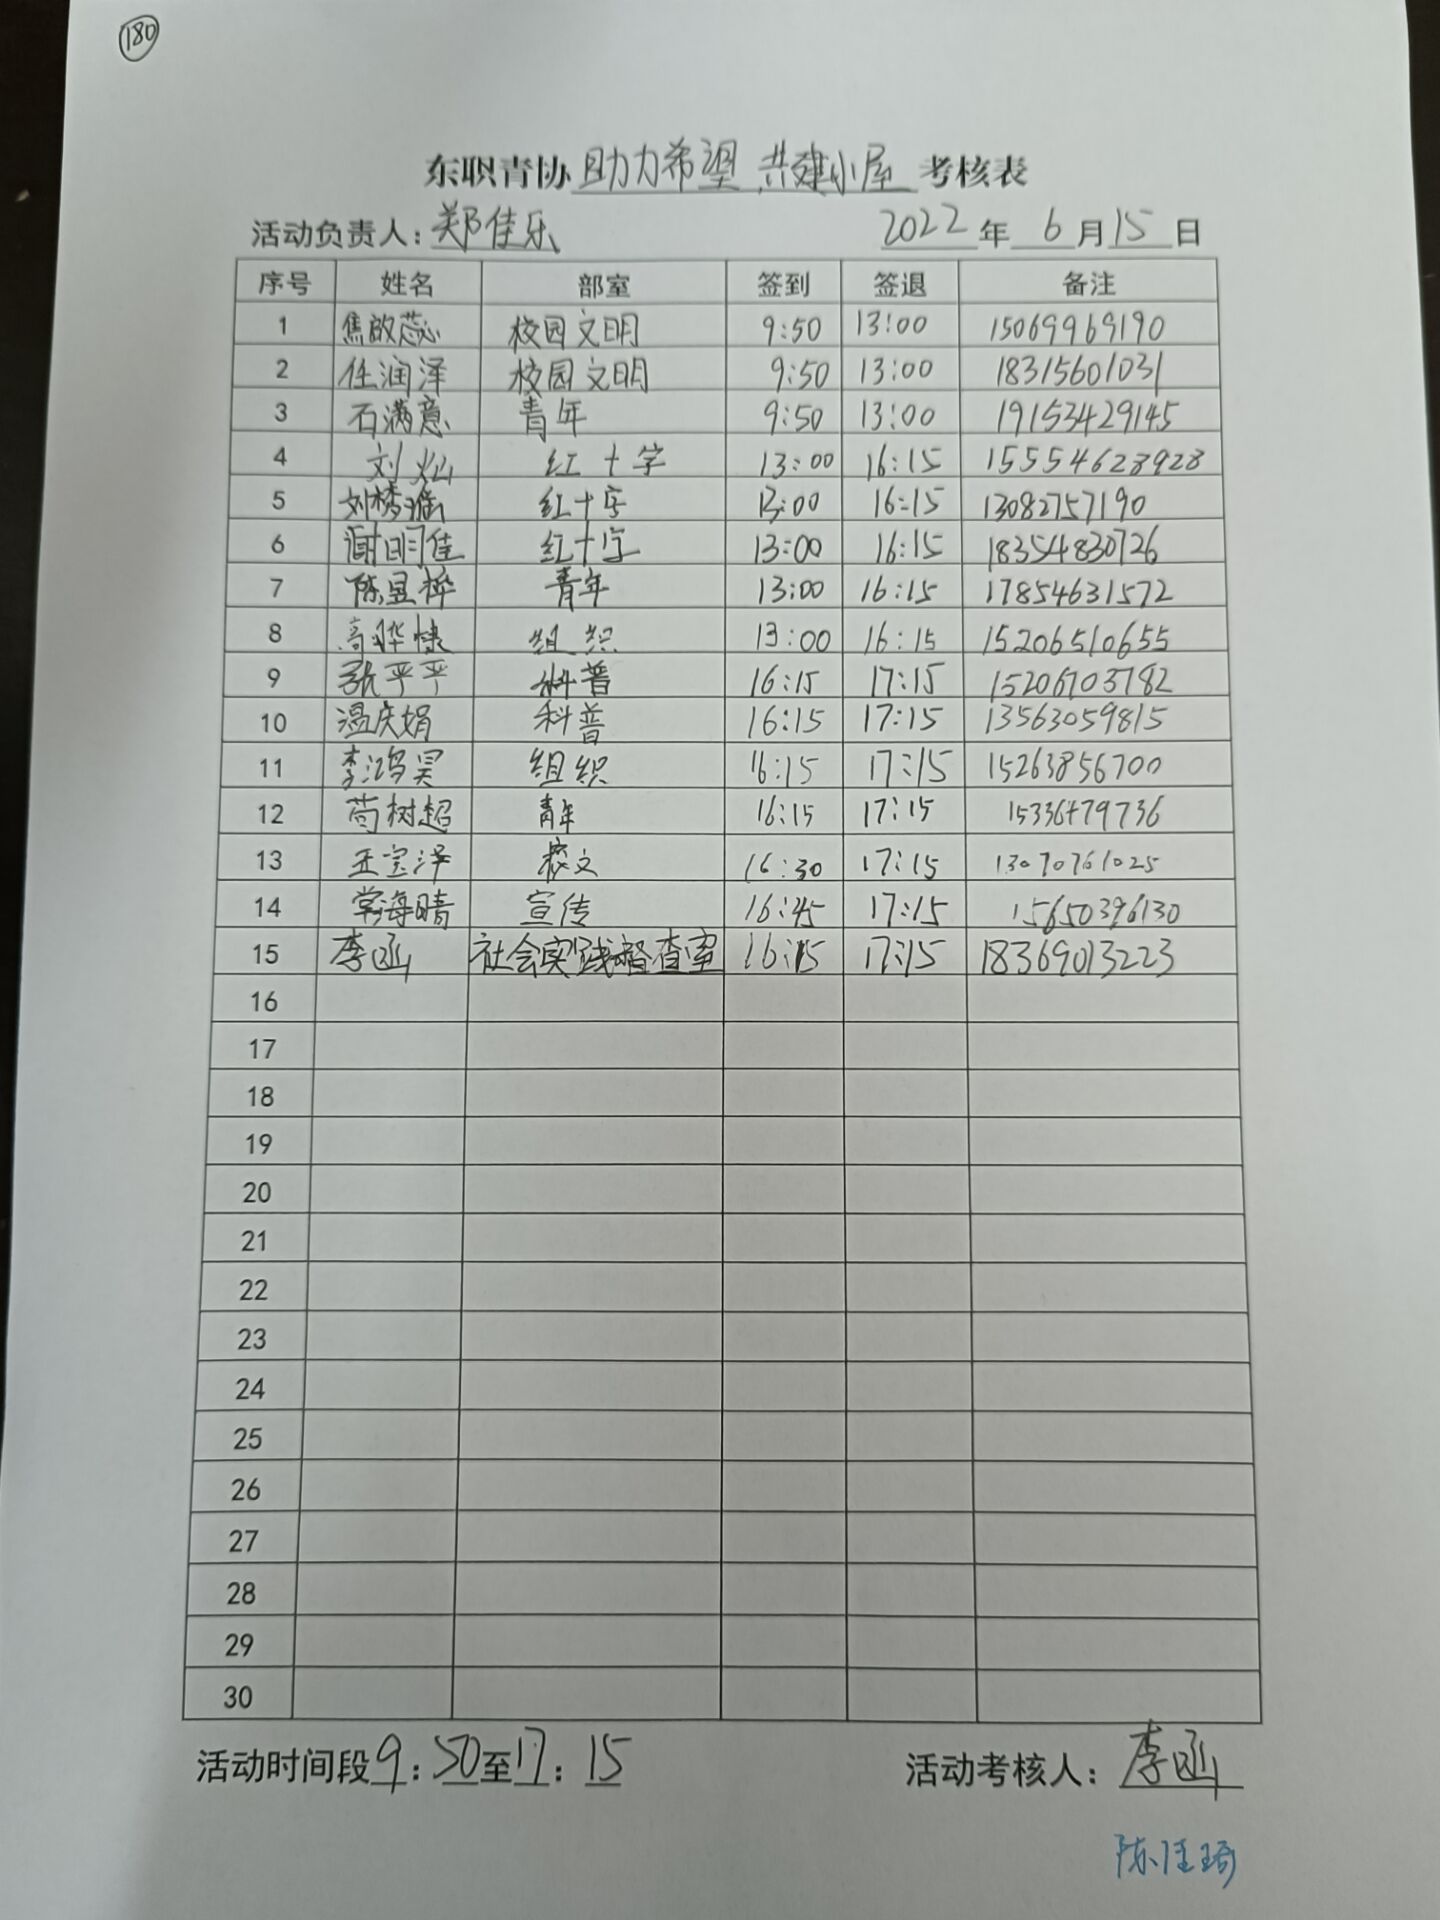 180
东职青协 助力希望,共建小屋 考核表
活动负责人：郑佳乐 2022 年 6 月 15 日
序号 姓名 部室 签到 签退 备注
1 焦啟蕊 校园文明 9:50 13:00 15069969190
2 任润泽 校园文明 9:50 13:00 18315601031
3 石满意 青年 9:50 13:00 19153429145
4 刘灿 红十字 13:00 16:15 15554628928
5 刘梦瑶 红十字 13:00 16:15 13082757190
6 谢明佳 红十字 13:00 16:15 18354830726
7 陈昱桦 青年 13:00 16:15 17854631572
8 组织 13:00 16:15 15206510655
9 张平平 科普 16:15 17:15 15206703782
10 温庆娟 科普 16:15 17:15 13563059815
11 李鸿昊 组织 16:15 17:15 15263856700
12 苟树超 青年 16:15 17:15 15336479736
13 王宝泽 校文 16:30 17:15 13070761025
14 常海晴 宣传 16:45 17:15 15650396130
15 李函 社会实践督查室 16:15 17:15 18369013223
16
17
18
19
20
21
22
23
24
25
26
27
28
29
30
活动时间段 9：50 至 17：15 活动考核人：李函
陈佳琦